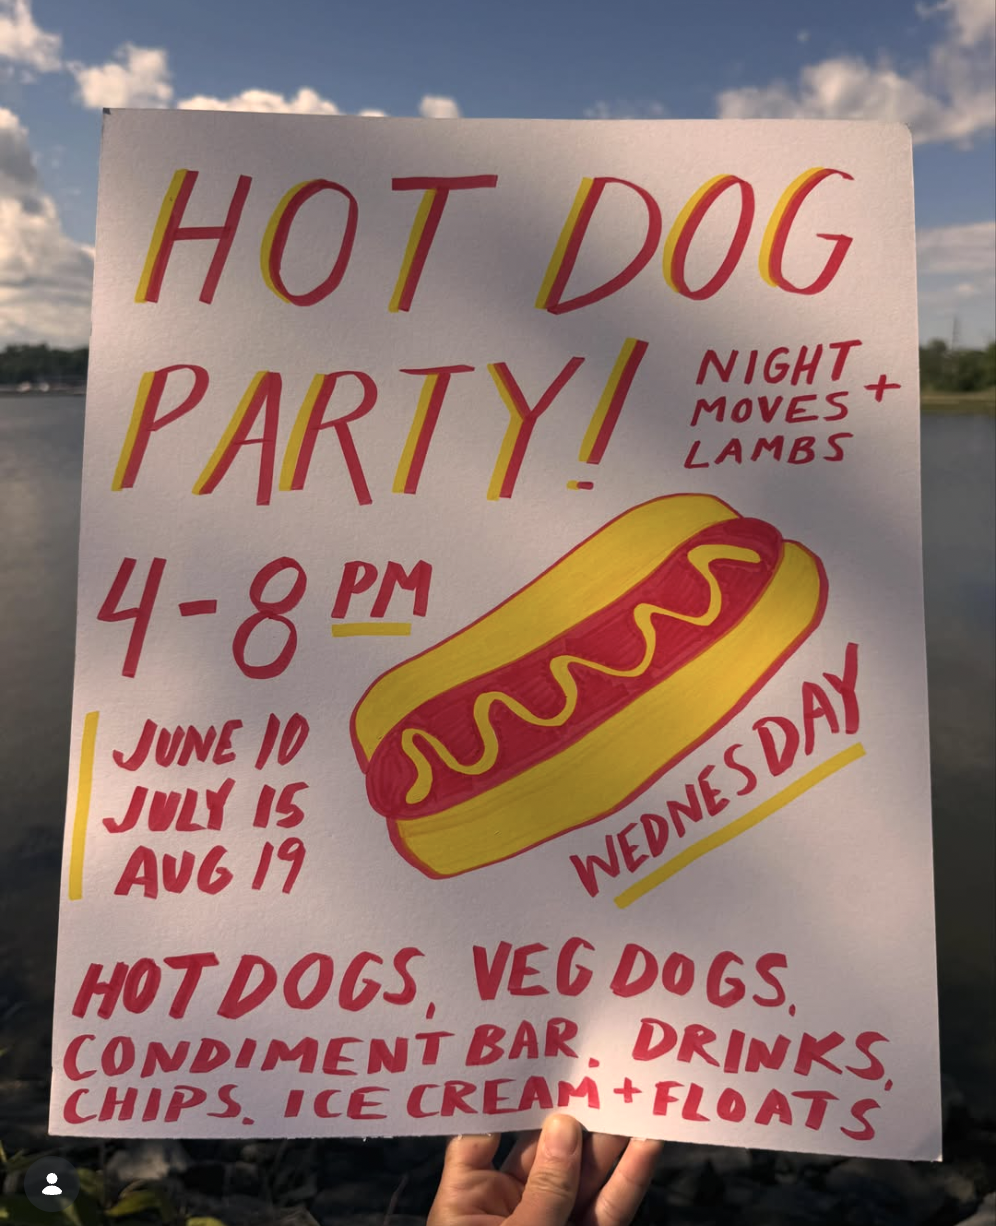 HOT DOG
PARTY!
NIGHT
MOVES +
LAMBS
4-8 PM
JUNE 10
JULY 15
AUG 19
WEDNESDAY
HOT DOGS, VEG DOGS,
CONDIMENT BAR, DRINKS,
CHIPS, ICE CREAM + FLOATS